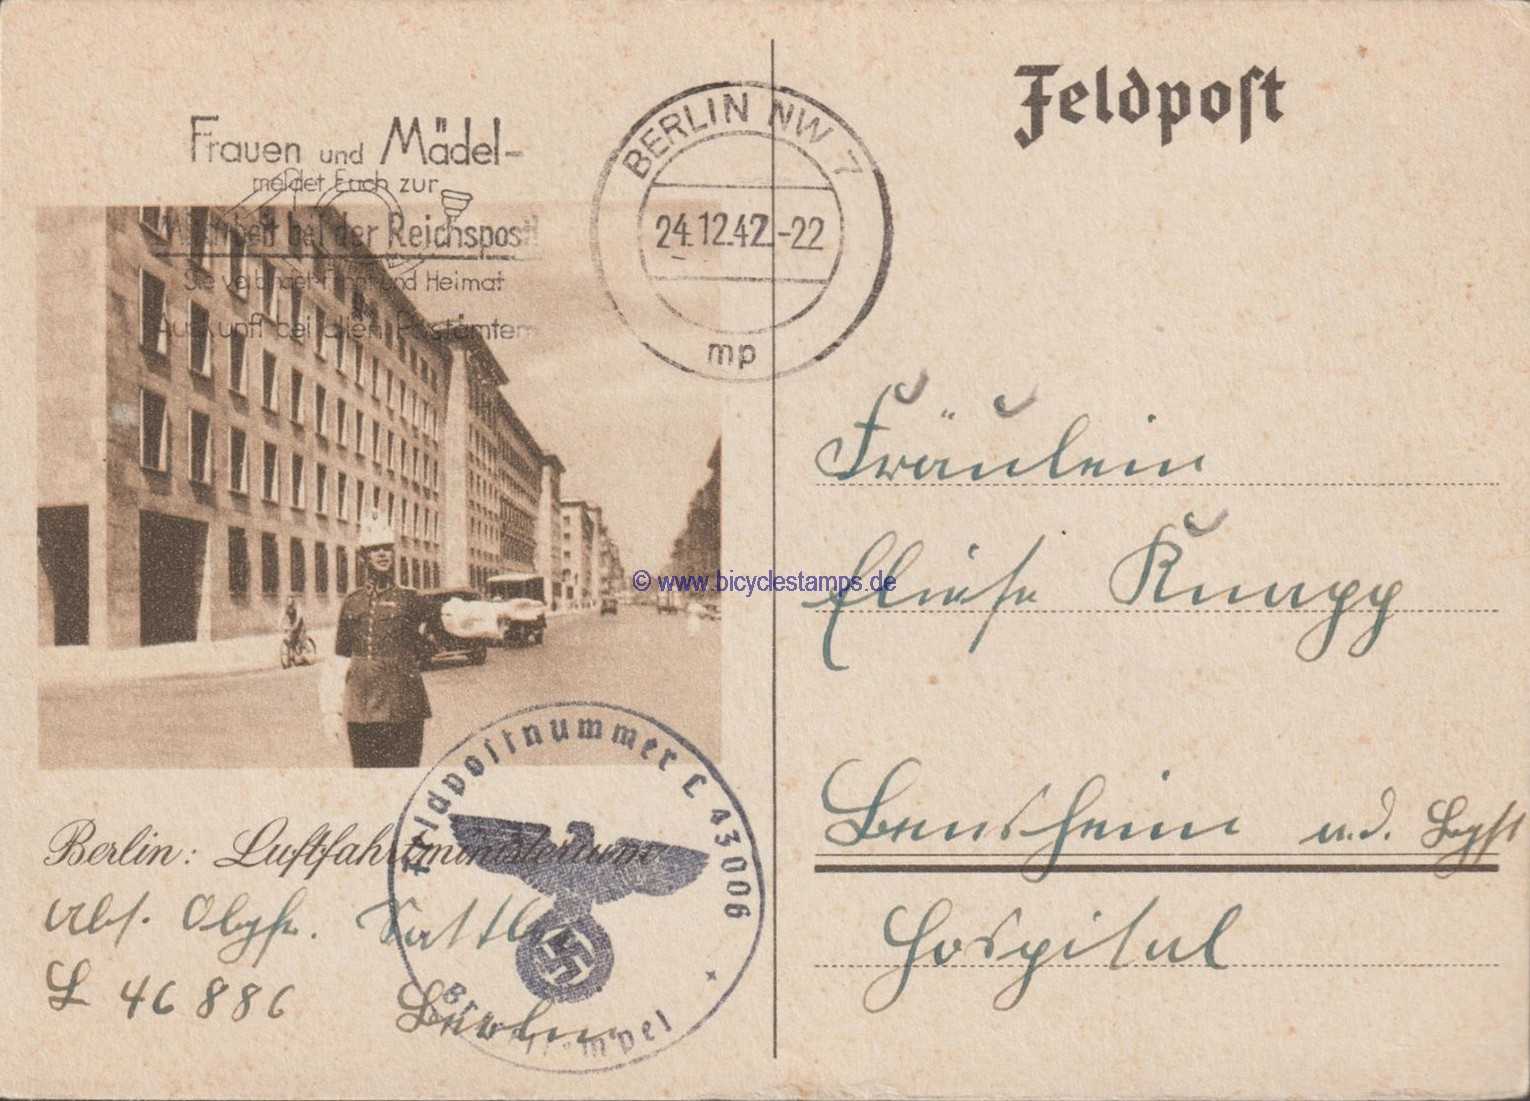 Feldpost
Frauen und Mädel-
meldet Euch zur
Mitarbeit bei der Reichspost!
Sie verbindet Front und Heimat
Auskunft bei allen Postämtern
BERLIN NW 7
24.12.42.-22
mp
© www.bicyclestamps.de
Fräulein
Eliese Knapp
Bensheim a.d. Bgst
Hospital
Berlin: Luftfahrtministerium
Abs. Obgfr. Sattler
L 46 886 Berlin
Feldpostnummer L 43006
Briefstempel